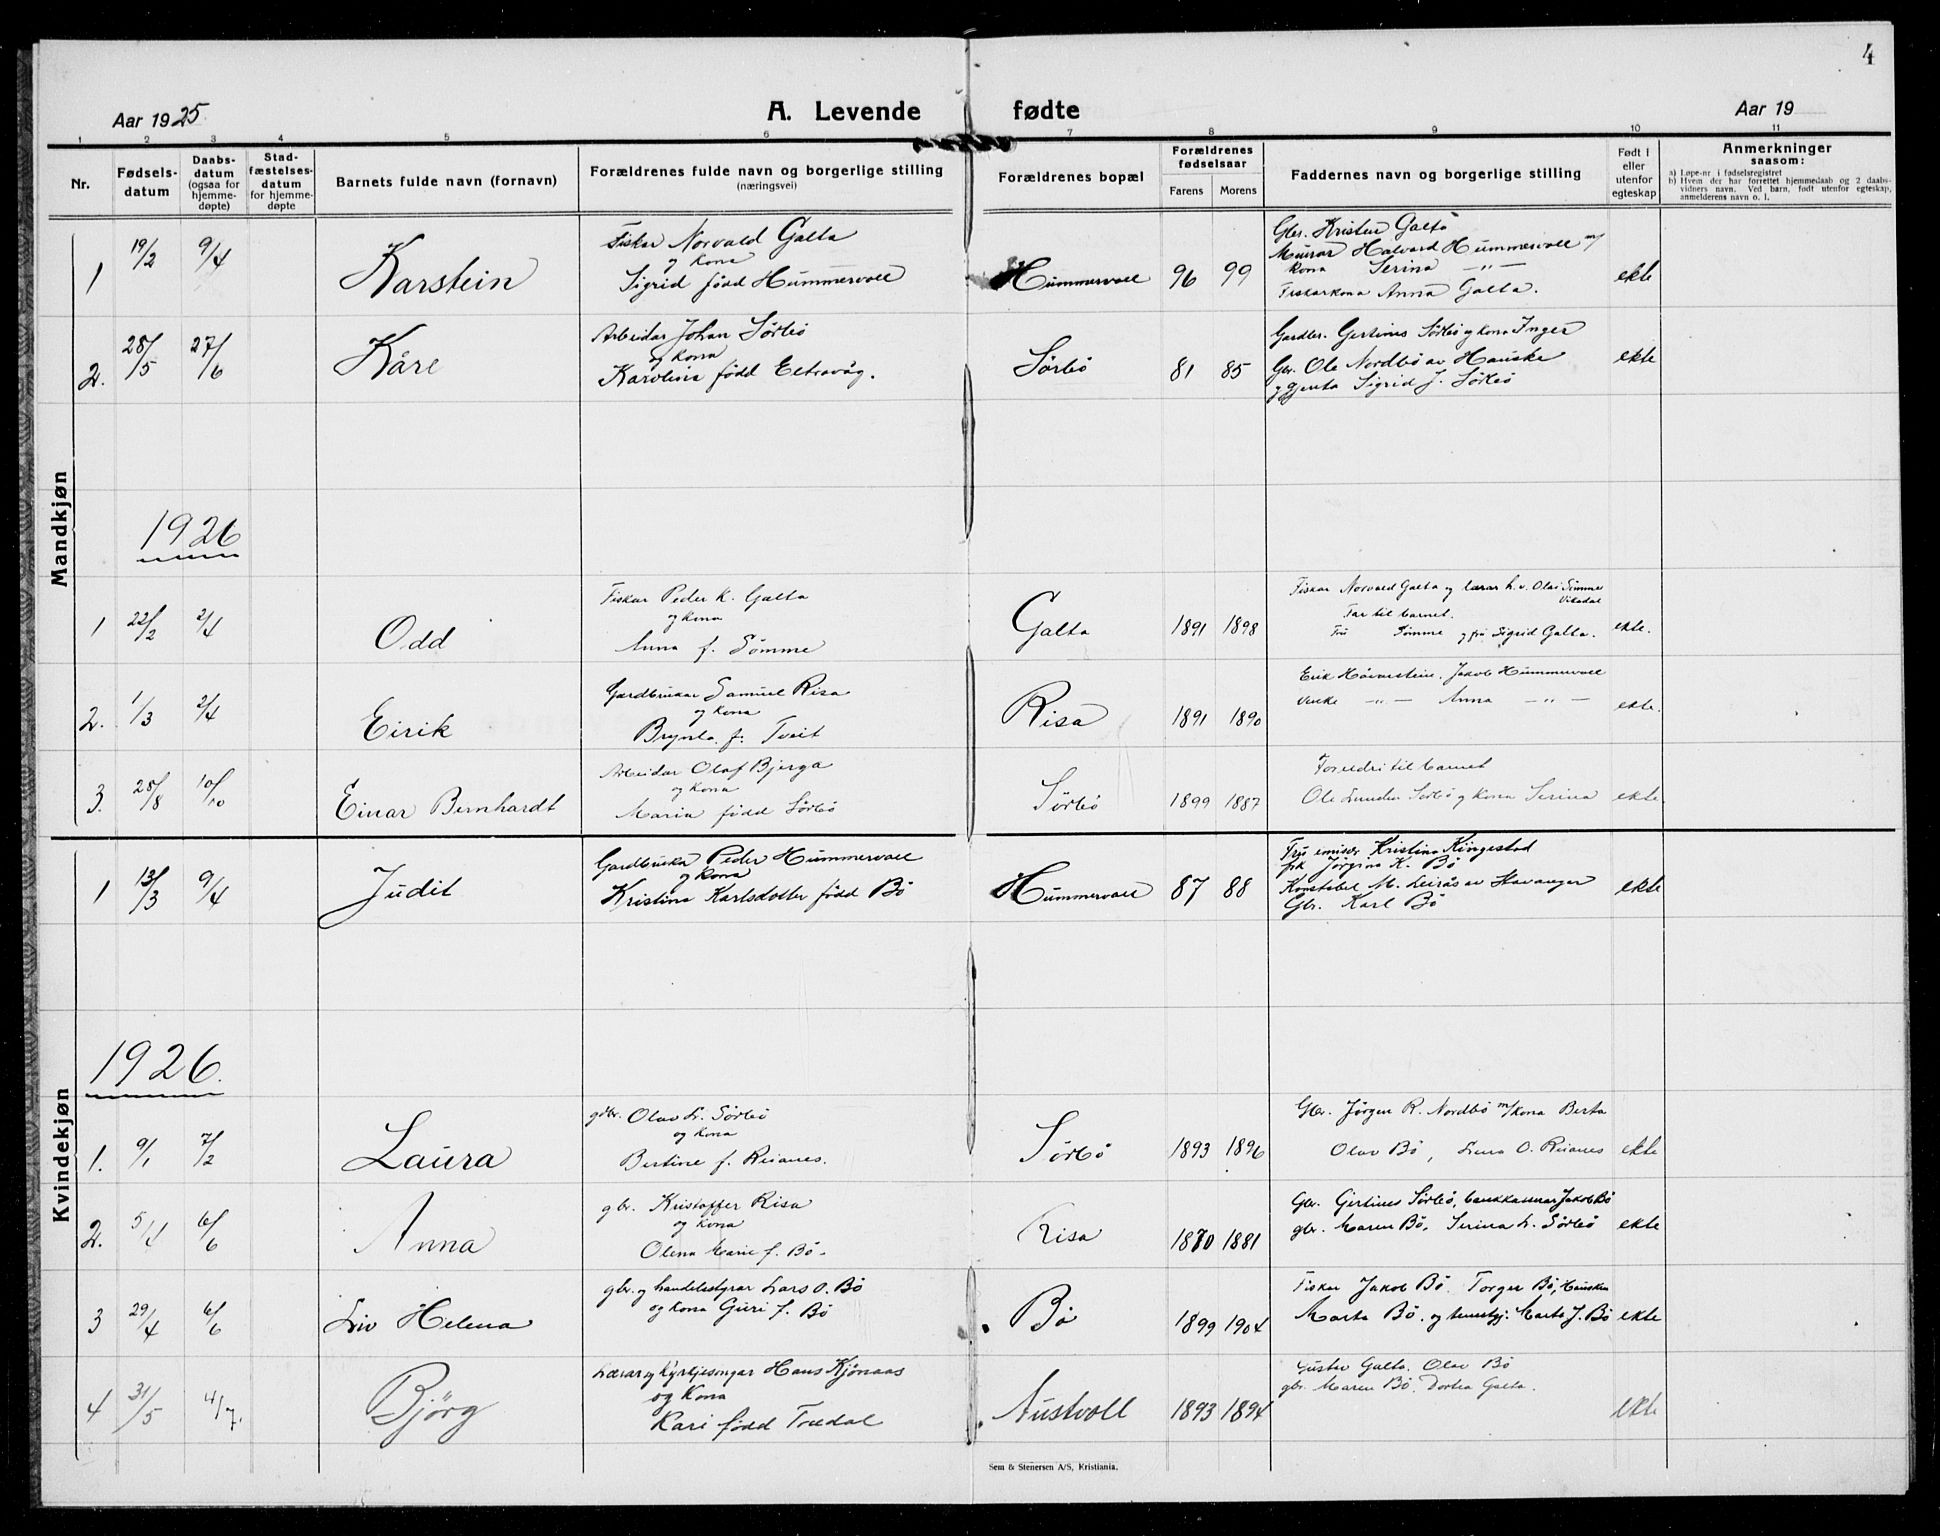 4
Aar 1925
A. Levende fødte
Aar 19
1 2 3 4 5 6 7 8 9 10 11
Nr.
Fødselsdatum
Daabsdatum (ogsaa for hjemmedøpte)
Stadfæstelsesdatum for hjemmedøpte
Barnets fulde navn (fornavn)
Forældrenes fulde navn og borgerlige stilling
(næringsvei)
Forældrenes bopæl
Forældrenes fødselsaar
Farens Morens
Faddernes navn og borgerlige stilling
Født i eller utenfor egteskap
Anmerkninger
saasom:
a) Løpe-nr. i fødselsregistret
b) Hvem der har forrettet hjemmedaab og 2 daabsvidners navn. Ved barn, født utenfor egteskap, anmelderens navn o. l.
Mandkjøn
1 19/2 9/4 Karstein
Fiskar Norvald Galta
og kona
Sigrid född Hummervoll
Hummervoll 96 99
Gbr. Kristen Galta
Murar Halvard Hummervoll m/
kona Serina -"-
Fiskarkona Anna Galta.
ekte
2. 28/5 27/6 Kåre
Arbeidar Johan Sörbö
og kona
Karolina född Eltravåg.
Sörbö 81 85
Gardbr. Gertinus Sörbö og kona Inger
Gbr. Ole Nordbö av Hauske
og gjenta Sigrid J. Sörbö
ekte
1926
1 22/2 2/4 Odd
Fiskar Peder K. Galta
og kona
Anna f. Sömme
Galta 1891 1898
Fiskar Norvald Galta og lærar h. v. Olai Sömme
Vikedal
Far til barnet.
Fru Sömme og frú Sigrid Galta.
ekte.
2. 1/3 2/4 Eirik
Gardbrukar Samuel Risa
og kona
Brynla f. Tveit
Risa 1891 1890
Erik Hövarstein, Jakob Hummervoll
-"- Anna -"-
ekte.
3. 28/8 10/10 Einar Bernhardt
Arbeidar Olaf Bjerga
og kona
Maria född Sörbö
Sörbö 1899 1887
Foreldri til barnet
Ole Sörbö og kona Serina
ekte
Kvindekjøn
1 13/3 9/4 Judit
Gardbruka Peder Hummervoll
og kona
Kristina Karlsdotter född Bö
Hummervoll 87 88
Fru emisær Kristina Ringestad
frk Jörgina K. Bö
Konstabel M. Leirås av Stavanger
Gbr. Karl Bö
ekte
1926.
1. 9/1 7/2 Laura
gdbr. Olav L. Sörbö
og kona
Bertine f. Reianes.
Sörbö 1893 1896
Gbr. Jörgen R. Nordbö m/kona Berta
Olav Bö, Lena O. Reianes
ekte
2. 5/4 6/6 Anna
gbr. Kristoffer Risa
og kona
Olena Marie f. Bö.
Risa 1880 1881
Gbr. Gertines Sörbö, bankkasserar Jakob Bö
gbr. Maren Bö, Serina L. Sörbö
ekte
3 29/4 6/6 Liv Helena
gbr. og handelsstyrar Lars O. Bö
og kona Guri f. Bö
Bö 1899 1904
Fiskar Jakob Bö. Torger Bö, Hausken
Marta Bö. og tenestgj. Marta J. Bö
ekte
4 31/5 4/7. Björg
Lærar og kyrkjesongar Hans Kjönaas
og kona
Kari född Tredal
Austvoll 1893 1894
Gustav Galta. Olav Bö
gbr. Maren Bö. Dortea Galta.
ekte
Sem & Stenersen A/S, Kristiania.